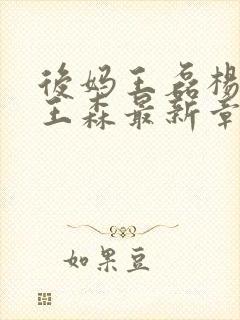 後妈王磊楊
王森最新章
如果豆